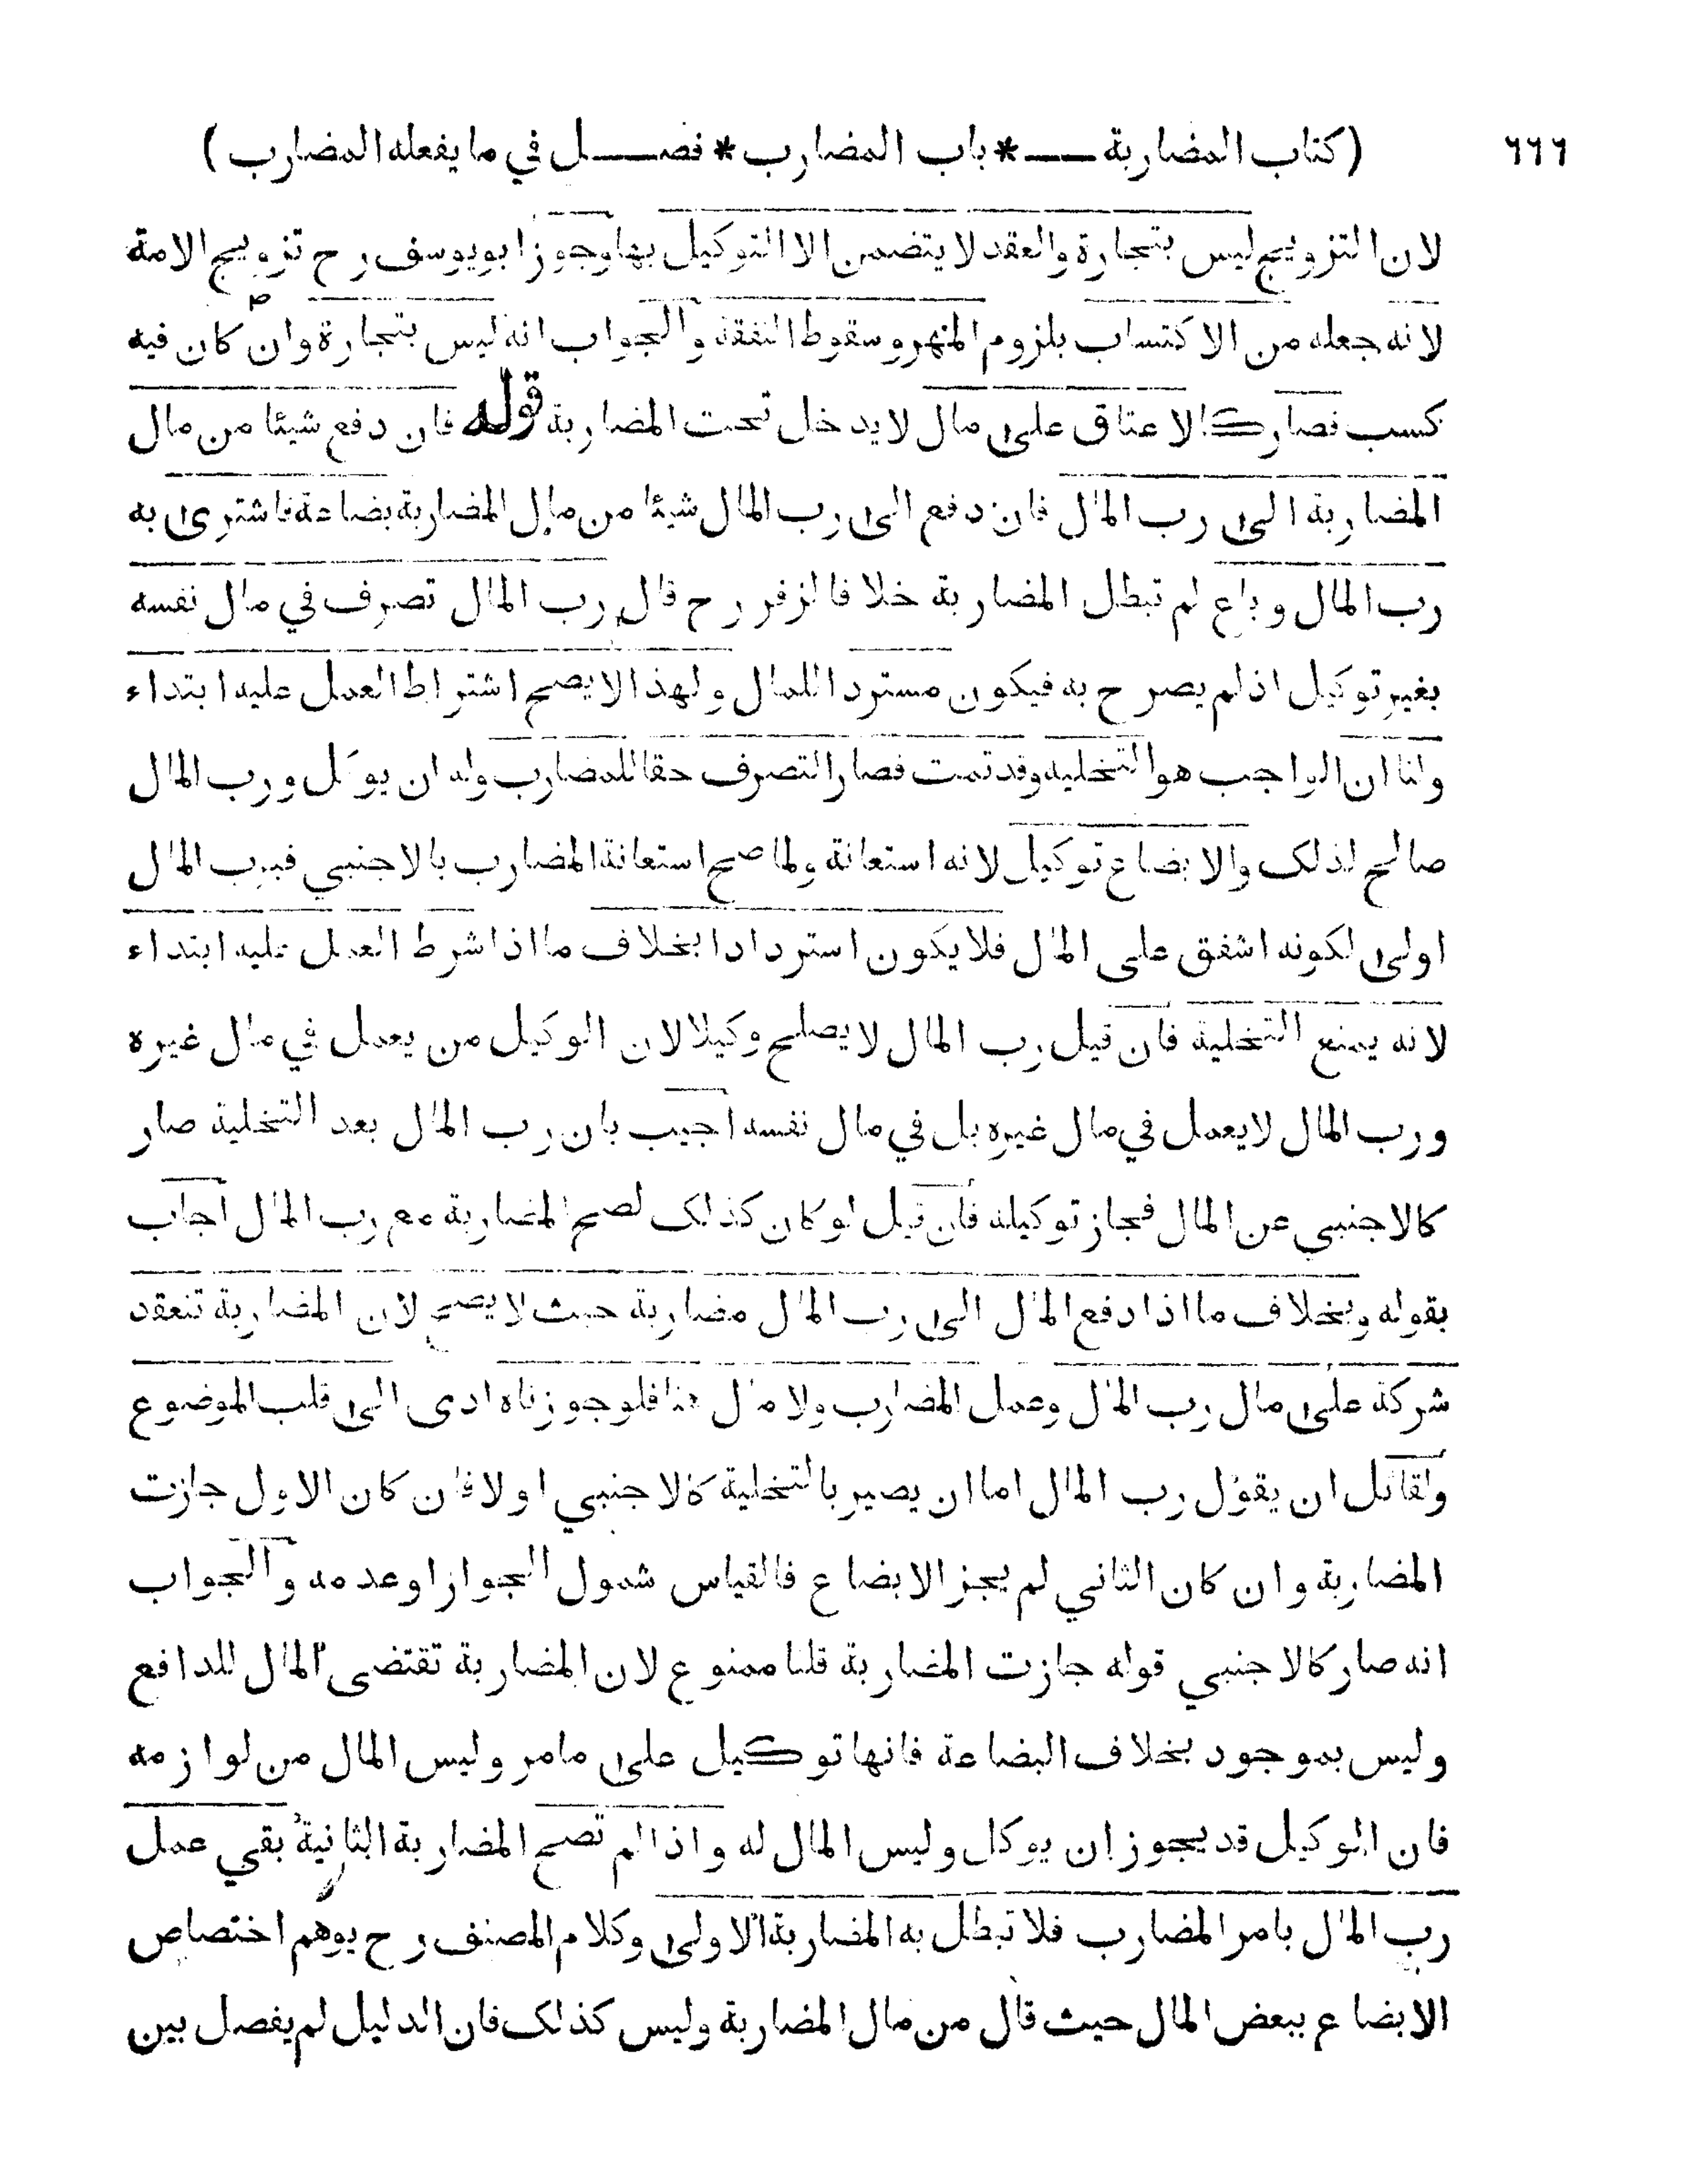 ٦٦٦ (كتاب المضاربة ــــ * باب المضارب * فصـــل في ما يفعله المضارب)
لان التزويج ليس بتجارة والعقد لا يتضمن الا التوكيل بها وجوز ابو يوسف رح تزويج الامة
لانه جعله من الاكتساب بلزوم المهر وسقوط النفقة والجواب انه ليس بتجارة وان كان فيه
كسب فصار كالاعتاق على مال لا يدخل تحت المضاربة قوله فان دفع شيئا من مال
المضاربة الى رب المال فان دفع الى رب المال شيئا من مال المضاربة بضاعة فاشترى به
رب المال وباع لم تبطل المضاربة خلافا لزفر رح قال رب المال تصرف في مال نفسه
بغير توكيل اذ لم يصرح به فيكون مستردا للمال ولهذا لا يصح اشتراط العمل عليه ابتداء
ولنا ان الواجب هو التخلية وقد تمت فصار التصرف حقا للمضارب وله ان يوكل ورب المال
صالح لذلك والابضاع توكيل لانه استعانة ولما صح استعانة المضارب بالاجنبي فبرب المال
اولى لكونه اشفق على المال فلا يكون استردادا بخلاف ما اذا شرط العمل عليه ابتداء
لانه يمنع التخلية فان قيل رب المال لا يصلح وكيلا لان الوكيل من يعمل في مال غيره
ورب المال لا يعمل في مال غيره بل في مال نفسه اجيب بان رب المال بعد التخلية صار
كالاجنبي عن المال فجاز توكيله فان قيل لو كان كذلك لصح المضاربة مع رب المال اجاب
بقوله وبخلاف ما اذا دفع المال الى رب المال مضاربة حيث لا يصح لان المضاربة تنعقد
شركة على مال رب المال وعمل المضارب ولا مال هنا فلو جوزناه ادى الى قلب الموضوع
ولقائل ان يقول رب المال اما ان يصير بالتخلية كالاجنبي او لا فان كان الاول جازت
المضاربة وان كان الثاني لم يجز الابضاع فالقياس شمول الجواز او عدمه والجواب
انه صار كالاجنبي قوله جازت المضاربة قلنا ممنوع لان المضاربة تقتضى المال للدافع
وليس بموجود بخلاف البضاعة فانها توكيل على ما مر وليس المال من لوازمه
فان الوكيل قد يجوز ان يوكل وليس المال له واذا لم تصح المضاربة الثانية بقي عمل
رب المال بامر المضارب فلا تبطل به المضاربة الاولى وكلام المصنف رح يوهم اختصاص
الابضاع ببعض المال حيث قال من مال المضاربة وليس كذلك فان الدليل لم يفصل بين